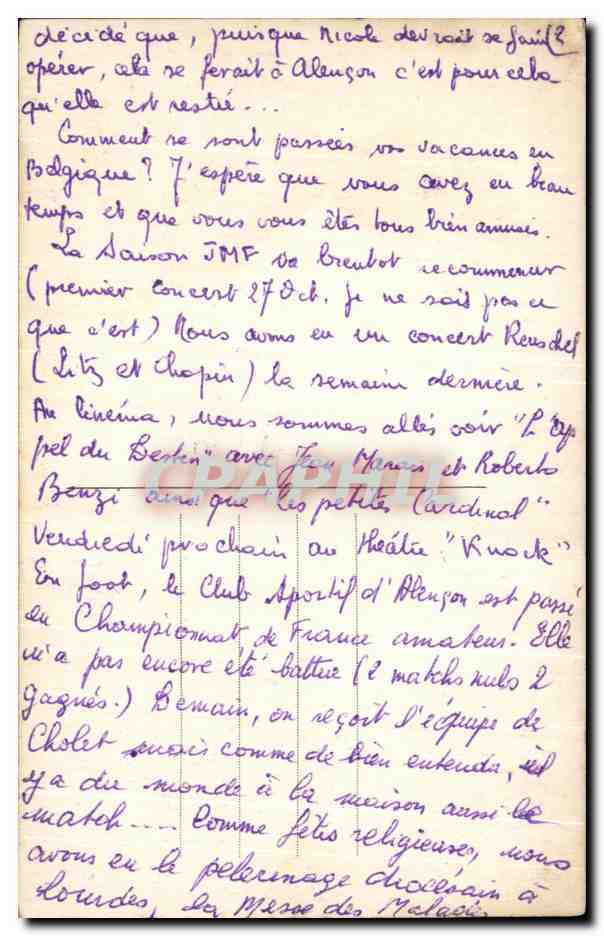 décidé que, puisque Nicole devrait se faire
opérer, cela se ferait à Alençon c'est pour cela
qu'elle est restée...
Comment se sont passées vos vacances en
Belgique? J'espère que vous avez eu beau
temps et que vous vous êtes tous bien amusés.
La Saison JMF va bientot recommencer
(premier concert 27 Oct. je ne sais pas ce
que c'est) Nous avons eu un concert
(Litz et Chopin) la semaine dernière.
Au cinéma, nous sommes allés voir "L'Ap
pel du Destin" avec Jean Marais et Roberto
Benzi ainsi que "les petites Cardinal"
Vendredi prochain au théâtre: "Knock"
En foot, le Club Sportif d'Alençon est passé
en Championnat de France amateur. Elle
n'a pas encore été battue (2 matchs nuls 2
gagnés.) Demain, on reçoit l'équipe de
Cholet mais comme de bien entendu, il
y a du monde à la maison aussi le
match.... Comme fêtes religieuses, nous
avons eu le pelerinage diocésain à
Lourdes, la Messe des Malades
CPAPHIL